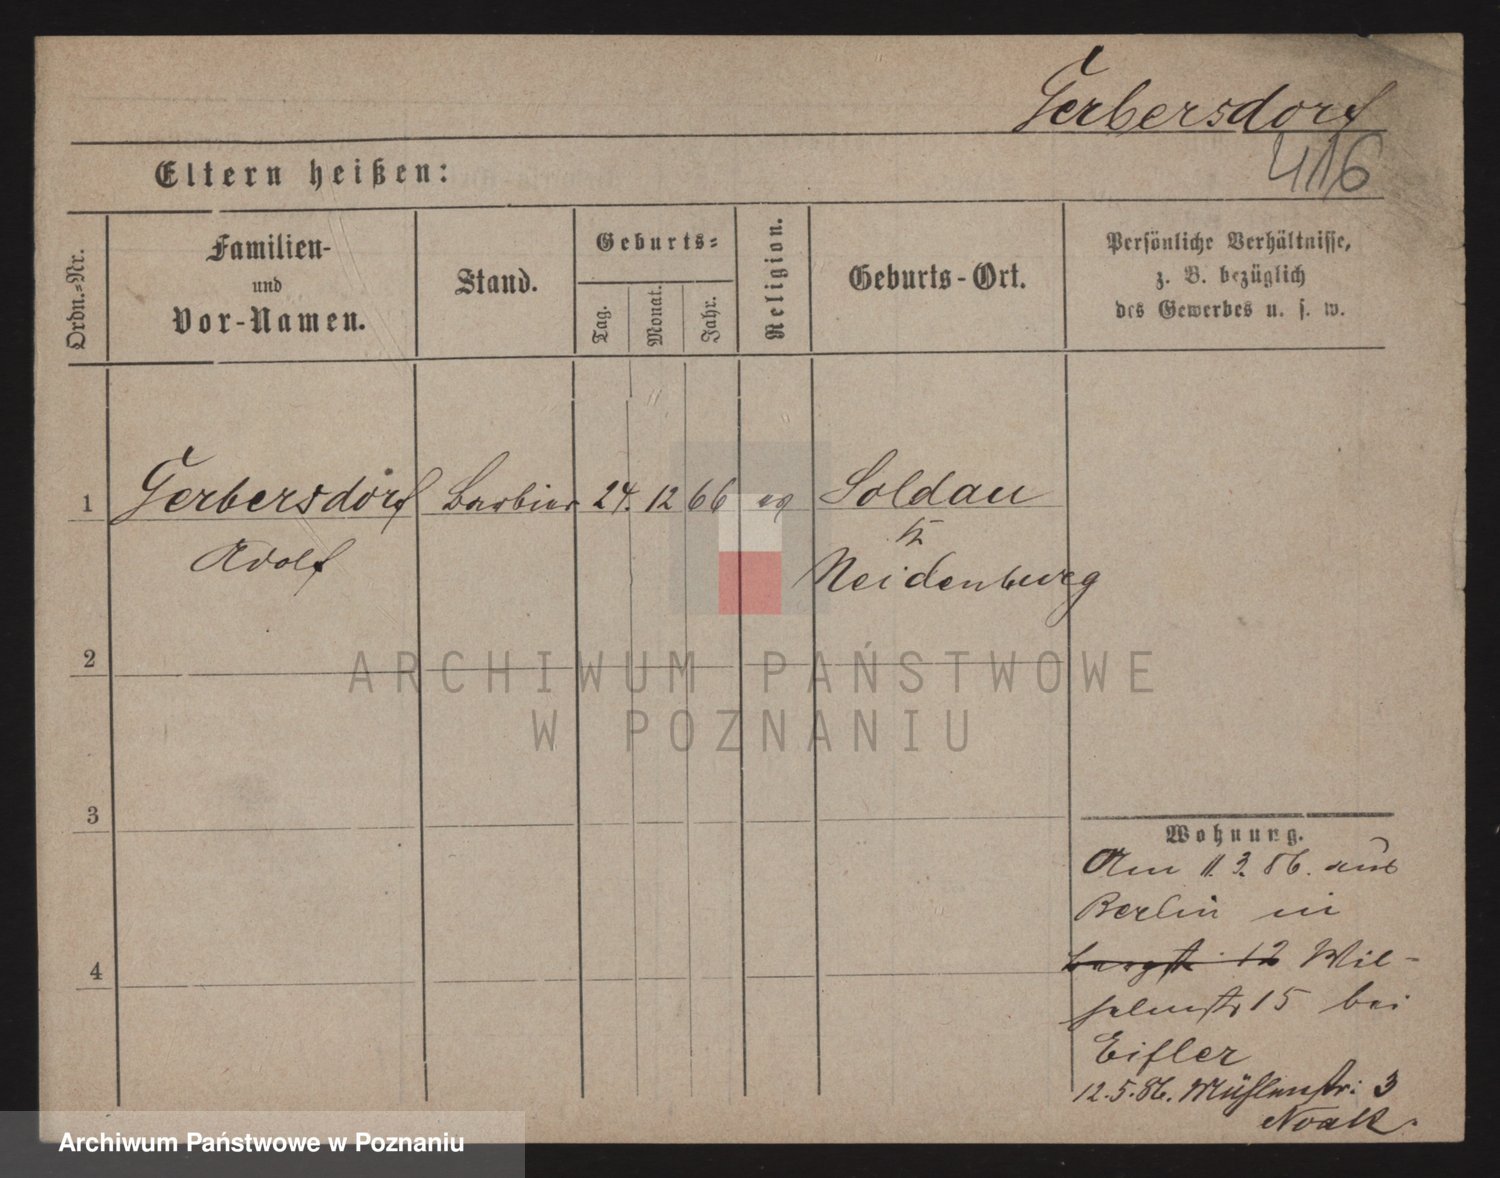 Gerbersdorf
416
Eltern heißen:
Ordn.-Nr.
Familien-
und
Vor-Namen.
Stand.
Geburts-
Tag.
Monat.
Jahr.
Religion.
Geburts-Ort.
Persönliche Verhältnisse,
z. B. bezüglich
des Gewerbes u. s. w.
1 Gerbersdorf Barbier 24. 12 66 ev Soldau
Adolf Neidenburg
2
3
4
Wohnung.
Am 11.3.86. aus
Berlin in
Bergstr 12 Wil-
helmstr 15 bei
Eifler
12.5.86. Mühlenstr: 3
Noack.
ARCHIWUM PAŃSTWOWE
W POZNANIU
Archiwum Państwowe w Poznaniu